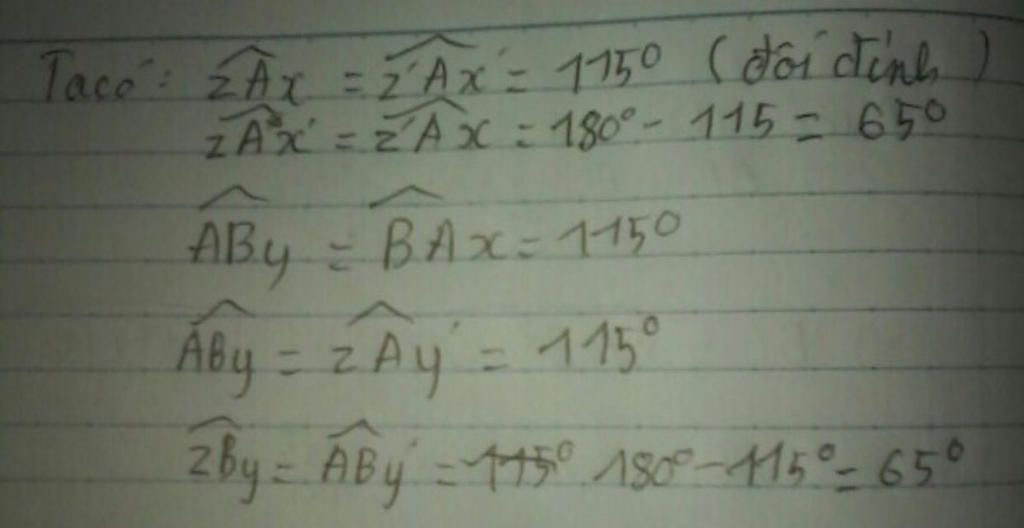 Ta có: zAx = z'Ax' = 115° (đối đỉnh)
zAx' = z'Ax = 180° - 115 = 65°
ABy = BAx = 115°
ABy = zAy' = 115°
zBy = ABy' = 115° 180° - 115° = 65°